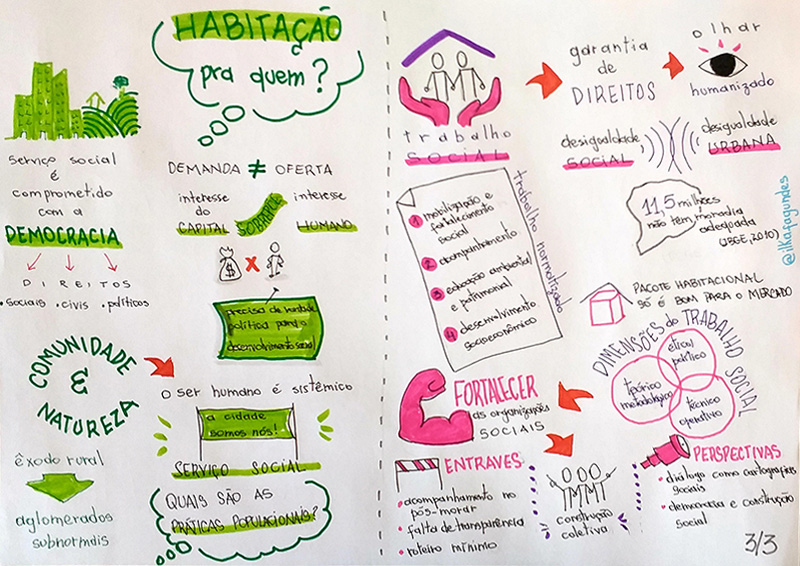 HABITAÇÃO
pra quem?
serviço social
é
comprometido
com a
DEMOCRACIA
DIREITOS
• sociais • civis • políticos
COMUNIDADE
&
NATUREZA
êxodo rural
aglomerados
subnormais
DEMANDA ≠ OFERTA
interesse
do
CAPITAL
SOBRE
interesse
HUMANO
$ X
precisa de vontade
política para o
desenvolvimento social
o ser humano é sistêmico
a cidade
somos nós!
SERVIÇO SOCIAL
QUAIS SÃO AS
PRÁTICAS POPULACIONAIS?
trabalho
SOCIAL
garantia
de
DIREITOS
olhar
humanizado
desigualdade
SOCIAL
desigualdade
URBANA
trabalho normatizado
1 mobilização e
fortalecimento
social
2 acompanhamento
3 educação ambiental
e patrimonial
4 desenvolvimento
socioeconômico
11,5 milhões
não têm moradia
adequada
(IBGE, 2010)
@ilkafagundes
PACOTE HABITACIONAL
SÓ É BOM PARA O MERCADO
DIMENSÕES do TRABALHO SOCIAL
ético/
político
teórico
metodológico
técnico
operativo
FORTALECER
as organizações
SOCIAIS
ENTRAVES
• acompanhamento no
pós-morar
• falta de transparência
• roteiro mínimo
construção
coletiva
PERSPECTIVAS
• diálogo como cartografias
sociais
• democracia e construção
social
3/3